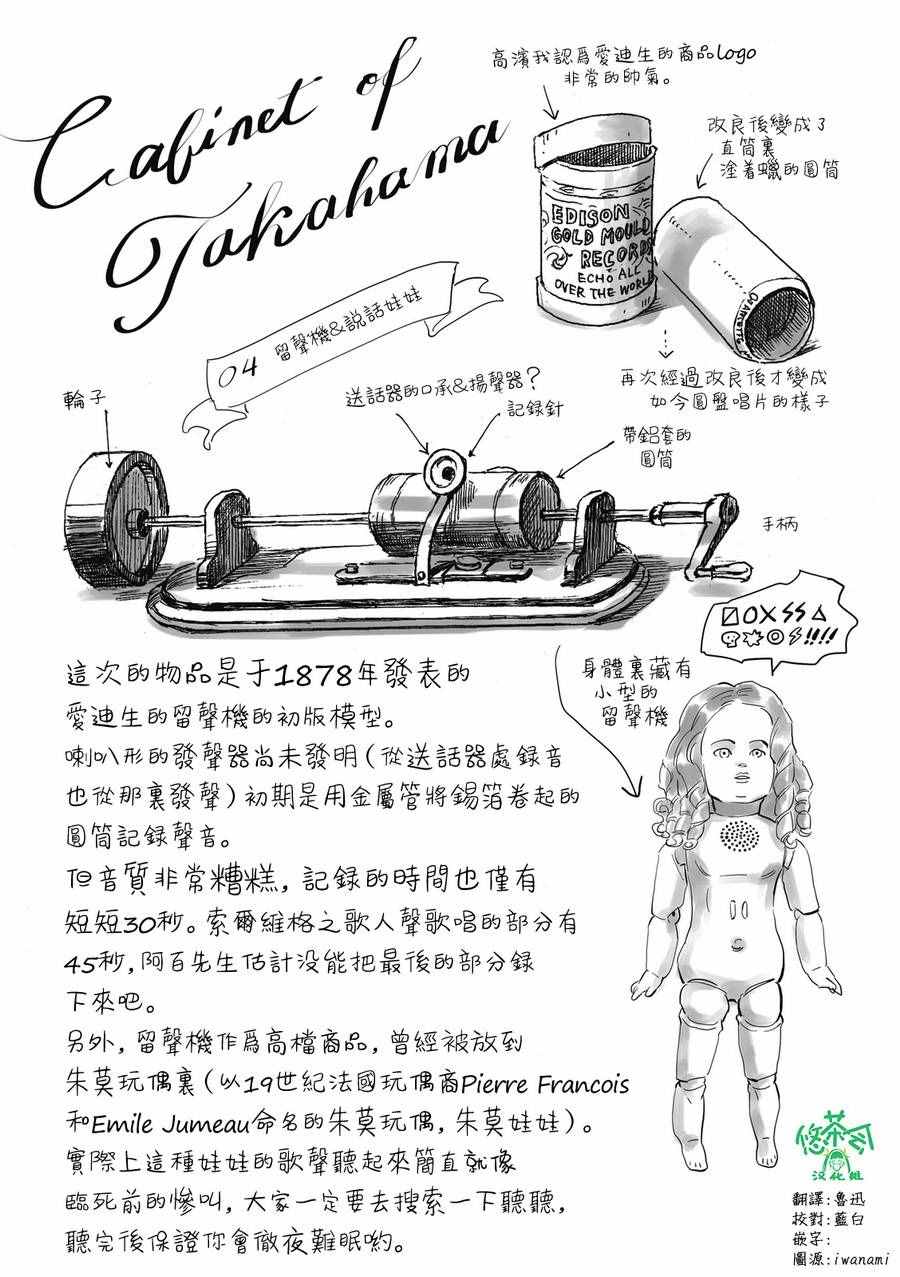 Cabinet of
Takahama
高濱我認爲愛迪生的商品logo
非常的帥氣。
改良後變成了
直筒裏
塗着蠟的圓筒
EDISON
GOLD MOULD
RECORDS
ECHO ALL
OVER THE WORLD
再次經過改良後才變成
如今圓盤唱片的樣子
04 留聲機&説話娃娃
輪子
送話器的口承&揚聲器？
記録針
帶鋁套的
圓筒
手柄
這次的物品是于1878年發表的
愛迪生的留聲機的初版模型。
喇叭形的發聲器尚未發明（從送話器處録音
也從那裏發聲）初期是用金屬管將錫箔卷起的
圓筒記録聲音。
但音質非常糟糕，記録的時間也僅有
短短30秒。索爾維格之歌人聲歌唱的部分有
45秒，阿百先生估計没能把最後的部分録
下來吧。
另外，留聲機作爲高檔商品，曾經被放到
朱莫玩偶裏（以19世紀法國玩偶商Pierre Francois
和Emile Jumeau命名的朱莫玩偶，朱莫娃娃）。
實際上這種娃娃的歌聲聽起來簡直就像
臨死前的慘叫，大家一定要去搜索一下聽聽，
聽完後保證你會徹夜難眠喲。
身體裏藏有
小型的
留聲機
悠茶会
汉化组
翻譯：魯迅
校對：藍白
嵌字：
圖源：iwanami